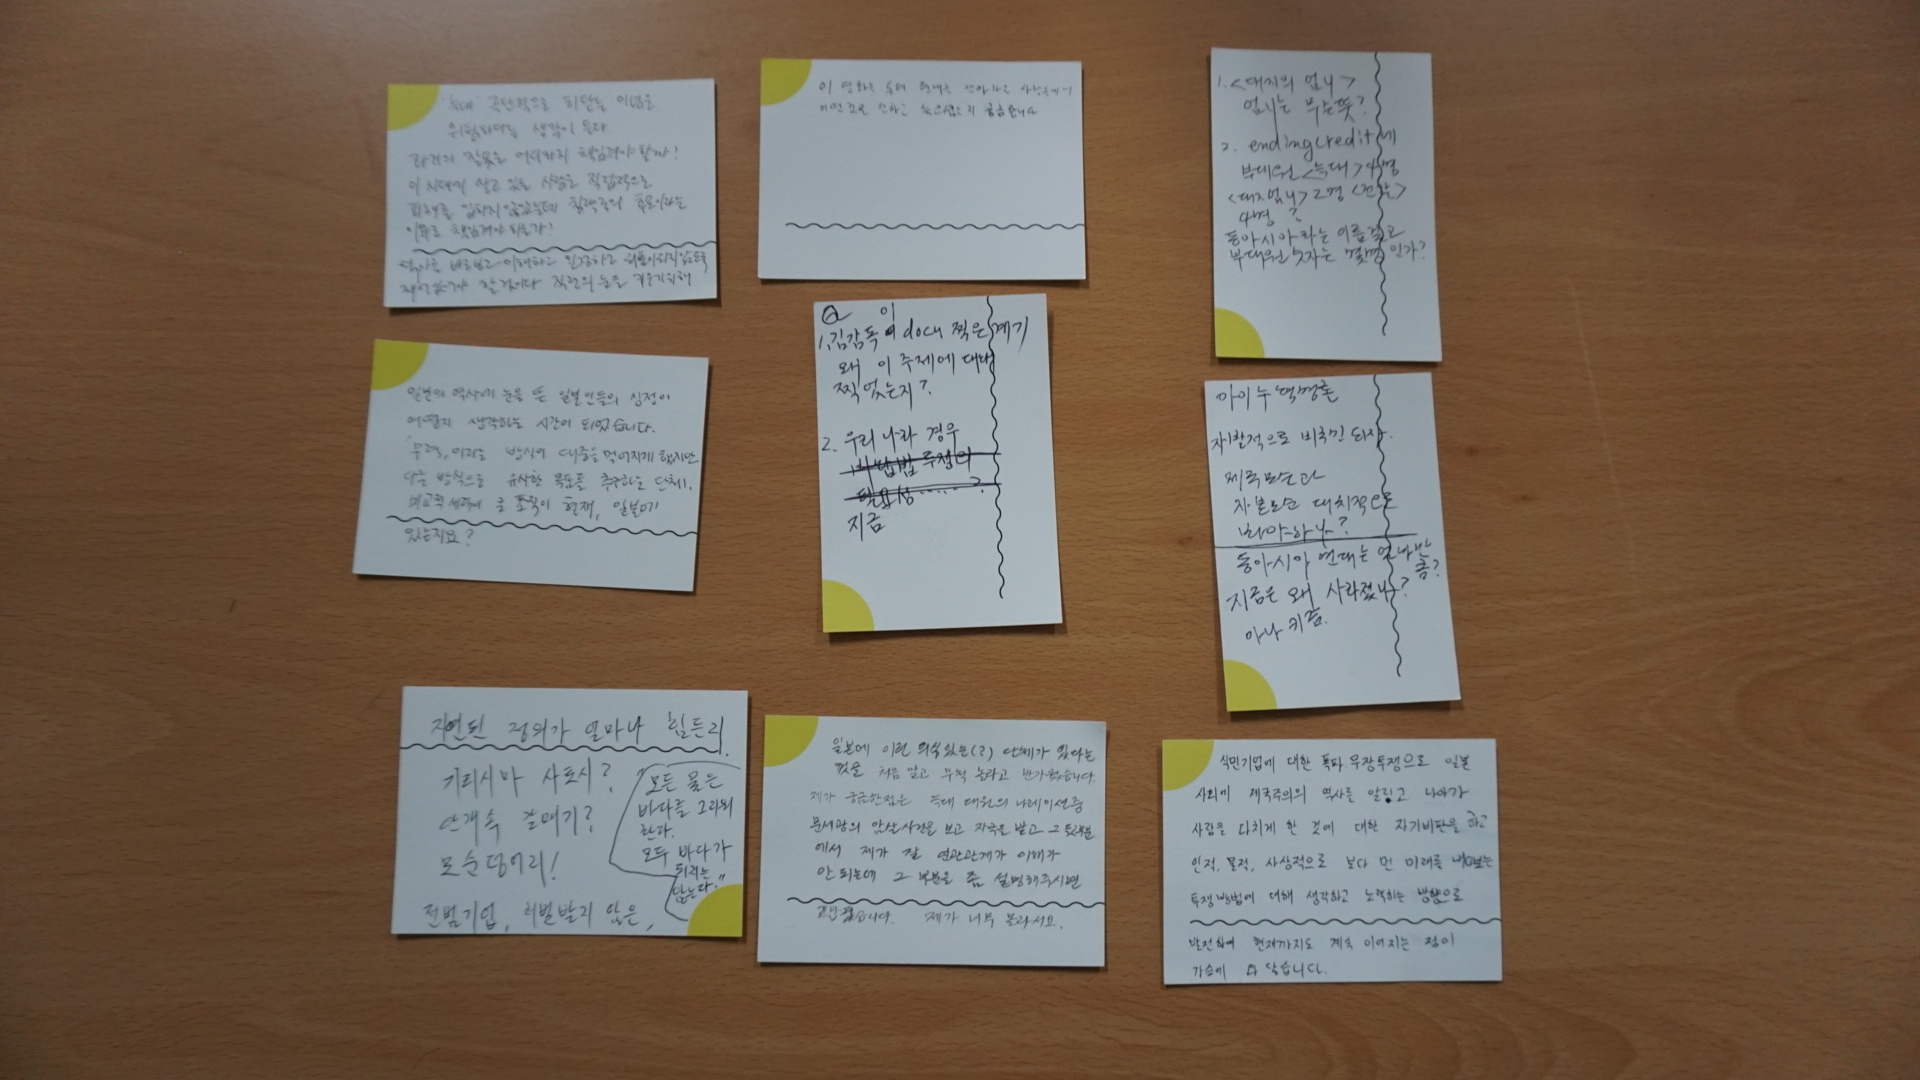 극단적으로 치닫는 이념은
위험하다는 생각이 든다
과거의 잘못을 어디까지 책임져야 할까?
이 시대에 살고 있는 사람은 직접적으로
피해를 입히지 않았는데
이유로 책임져야 하는가?
이 영화는 늑대
어떤 것을 말하고 싶으셨는지 궁금합니다
1. <대지의 엄니>
엄니는 무슨 뜻?
2. ending credit에
부대원 <늑대> 4명
<대지엄니> 2명 <전갈>
4명 ?
동아시아라는 이름갖고
부대원 숫자는 몇명 인가?
일본의 역사에 눈을 뜬 일본인들의 심정이
어떨지 생각하는 시간이 되었습니다.
무력, 이라는 방식이 대중을 멀어지게 했지만
다른 방식으로 유사한 목표를 추구하는 단체나,
조직이 현재, 일본에
있는지요?
Q 이
1. 김감독 docu 찍은 계기
왜 이 주제에 대해
찍었는지?
2. 우리 나라 경우
지금
아이누 혁명론
자발적으로 비국민 되자.
제국모순과
자본모순 대치적으로
봐야하나?
동아시아 연대는 얼마만
큼?
지금은 왜 사라졌나?
아나키즘.
지연된 정의가 얼마나 힘든지.
기리시마 사토시?
안개속 갈매기?
모순덩어리!
전범기업, 처벌받지 않은,
"모든 물은
바다를 그리워
한다.
모두 바다가
되려는
않는다."
일본에 이런 의식있는(?) 단체가 있다는
것을 처음 알고 무척 놀라고 반가웠습니다.
제가 궁금한점은 늑대 대원의 나레이션중
문세광의 암살사건을 보고 자극을 받고 그 부분
에서 제가 잘 연관관계가 이해가
안 되는데 그 부분을 좀 설명해주시면
고맙겠습니다. 제가 너무 몰라서요.
식민기업에 대한 폭파 무장투쟁으로 일본
사회에 제국주의의 역사를 알리고 나아가
사람을 다치게 한 것에 대한 자기비판을 하고
인적, 물적, 사상적으로 보다 먼 미래를 내다보는
투쟁방법에 대해 생각하고 노력하는 방향으로
발전하여 현재까지도 계속 이어지는 점이
가슴에 와 닿습니다.